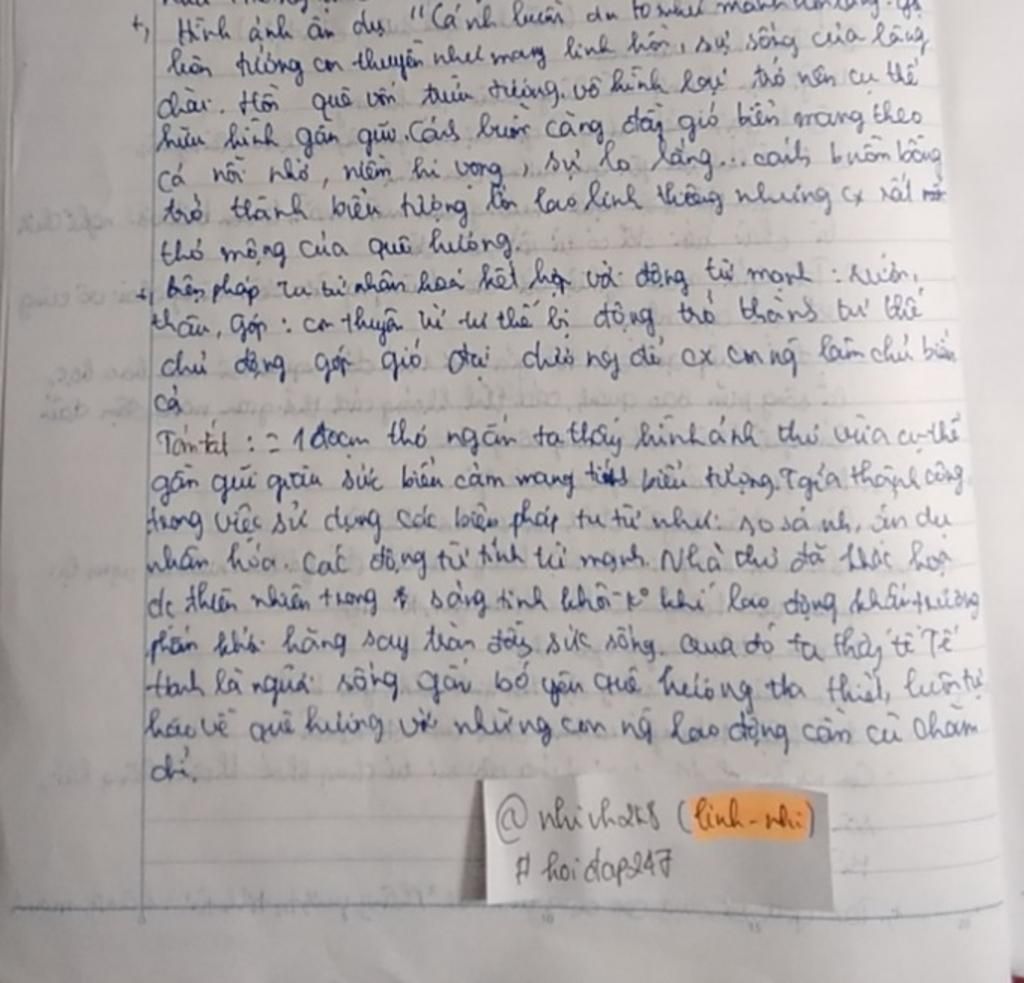 +, Hình ảnh ẩn dụ "Cánh buồm
liên tưởng con thuyền như mang linh hồn, sự sống của làng
chài. Hồn quê vốn trừu tượng. vô hình lại trở nên cụ thể
hữu hình gần gũi. Cánh buồm căng đầy gió biển mang theo
cả nỗi nhớ, niềm hi vọng, sự lo lắng... cánh buồm bỗng
trở thành biểu tượng lớn lao linh thiêng nhưng cx rất
thơ mộng của quê hương.
+, biện pháp tu từ nhân hoá kết hợp với động từ mạnh : rướn,
thâu, góp : con thuyền từ tư thế bị động trở thành tư thế
chủ động góp gió đại dương để cx con ng làm chủ biển
cả
Tóm tắt : = 1 đoạn thơ ngắn ta thấy hình ảnh thơ vừa cụ thể
gần gũi giàu sức biểu cảm mang tính biểu tượng. Tgiả thành công
trong việc sử dụng các biện pháp tu từ như: so sánh, ẩn dụ
nhân hóa. Các động từ tính từ mạnh. Nhà thơ đã khắc hoạ
dc thiên nhiên trong sáng tinh khôi. ko khí lao động khẩn trương
phấn khởi hăng say tràn đầy sức sống. Qua đó ta thấy Tế
Hanh là người sống gắn bó yêu quê hương tha thiết, luôn tự
hào về quê hương với những con ng lao động cần cù chăm
chỉ.
@ nhi ch2k8 (linh-nhi)
# hoidap247